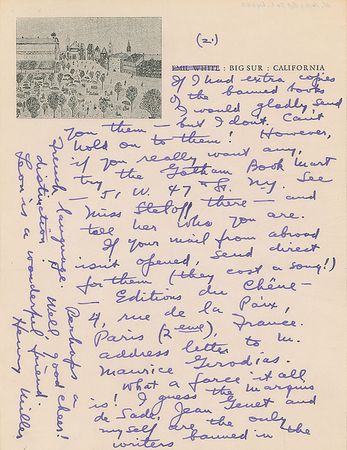 (2.)
EMIL WHITE : BIG SUR ; CALIFORNIA
If I had extra copies
of the banned books
I would gladly send
you them — but I don't. Can't
hold on to them! However,
if you really want any,
try the Gotham Book Mart
— 51 W. 47 St. N.Y. See
Miss Steloff there — and
tell her who you are.
If your mail from abroad
isn't opened, send direct
for them (they cost a song!)
— Editions du Chêne —
4, rue de la Paix,
Paris (2 eme), France.
address letter to M.
Maurice Girodias.
What a farce it all
is! I guess the Marquis
de Sade, Jean Genet and
myself are the only
writers banned in the
French language. Perhaps a
distinction. Well, good cheer!
Leon is a wonderful friend.
Henry Miller